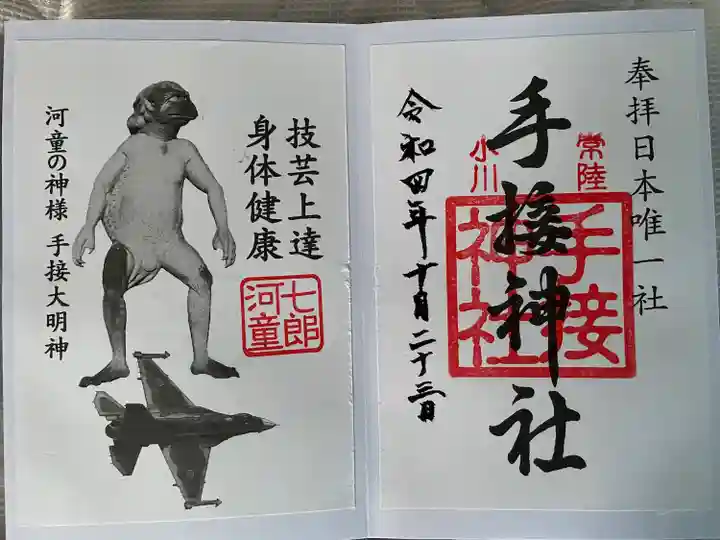 奉拝日本唯一社
常陸
小川
手接神社
手接
神社
令和四年十月二十三日
技芸上達
身体健康
七郎
河童
河童の神様 手接大明神